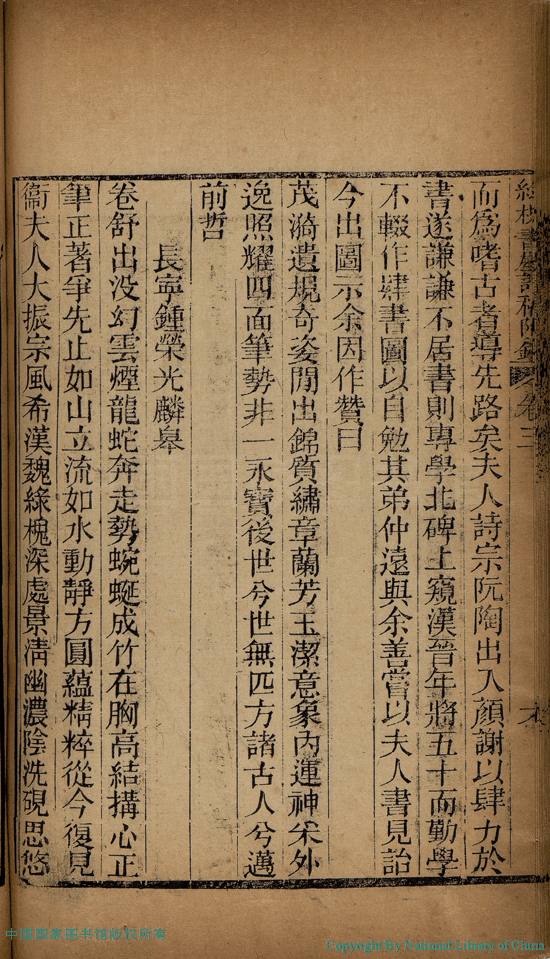 而爲嗜古者導先路矣夫人詩宗阮陶出入顏謝以肆力於
書遂謙謙不居書則專學北碑上窺漢晉年將五十而勤學
不輟作肄書圖以自勉其弟仲遠與余善嘗以夫人書見詒
今出圖示余因作贊曰
茂漪遺規奇姿閒出錦質繡章蘭芳玉潔意象內運神采外
逸照耀四面筆勢非一永寶後世兮世無匹方諸古人兮邁
前哲
長寧鍾榮光麟皋
卷舒出没幻雲煙龍蛇奔走勢蜿蜒成竹在胸高結搆心正
筆正著爭先止如山立流如水動靜方圓蘊精粹從今復見
衞夫人大振宗風希漢魏綠槐深處景淸幽濃陰洗硯思悠
卷三
中国国家图书馆版权所有
Copyright By National Library of China